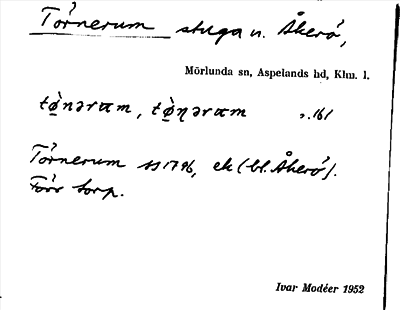 Törnerum stuga u. Åkerö,
Mörlunda sn, Aspelands hd, Klm. l.
tø̀nərɷm, tø̀ηərɷm 161
Törnerum 1796, ek (bl. Åkerö).
Förr torp.
Ivar Modéer 1952